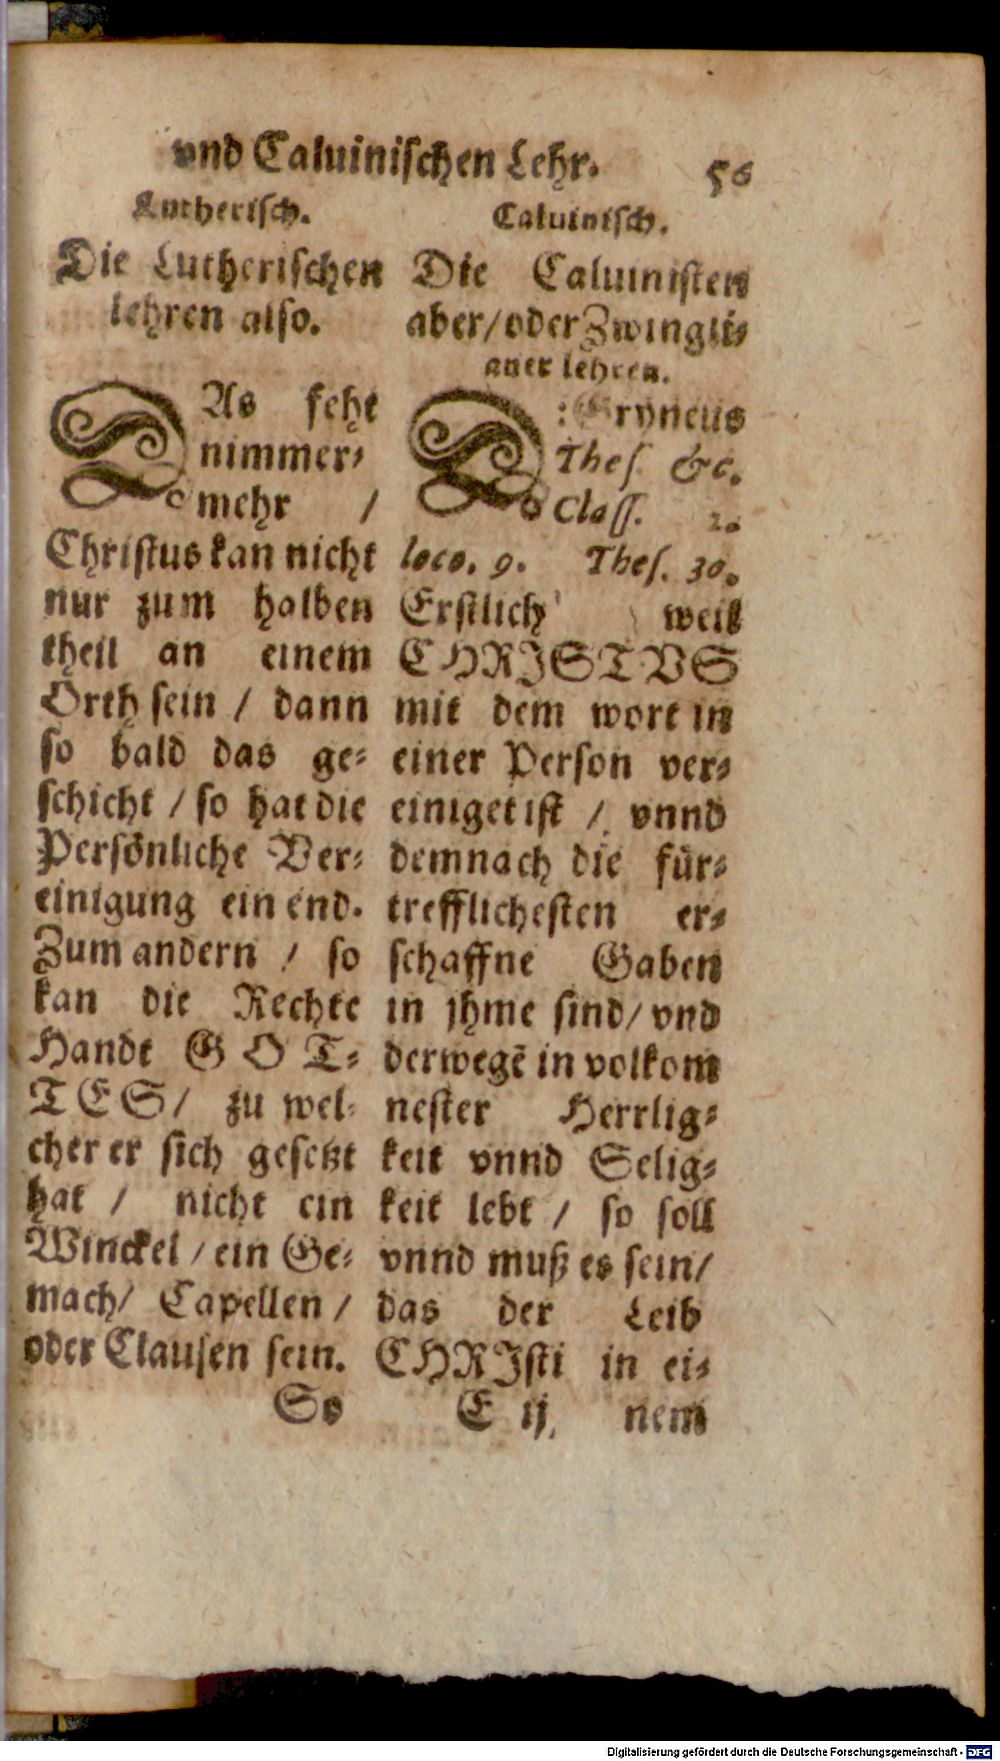 vnd Caluinischen Lehr. 56
Lutherisch.
Die Lutherischen
lehren also.
DAs feht
nimmer⸗
mehr /
Christus kan nicht
nur zum halben
theil an einem
Orth sein / dann
so bald das ge⸗
schicht / so hat die
Persönliche Ver⸗
einigung ein end.
Zum andern / so
kan die Rechte
Handt GOT⸗
TES / zu wel⸗
cher er sich gesetzt
hat / nicht ein
Winckel / ein Ge⸗
mach / Capellen /
oder Clausen sein.
So
Caluinisch.
Die Caluinisten
aber / oder Zwingli⸗
aner lehren.
D: Gryneus
Thes. &c.
Class. 2.
loco. 9. Thes. 30.
Erstlich weil
CHRISTVS
mit dem wort in
einer Person ver⸗
einiget ist / vnnd
demnach die für⸗
trefflichesten er⸗
schaffne Gaben
in jhme sind / vnd
derwegē in volkom
nester Herrlig⸗
keit vnnd Selig⸗
keit lebt / so soll
vnnd muß es sein /
das der Leib
CHRIsti in ei⸗
E ij. nem
Digitalisierung gefördert durch die Deutsche Forschungsgemeinschaft - DFG